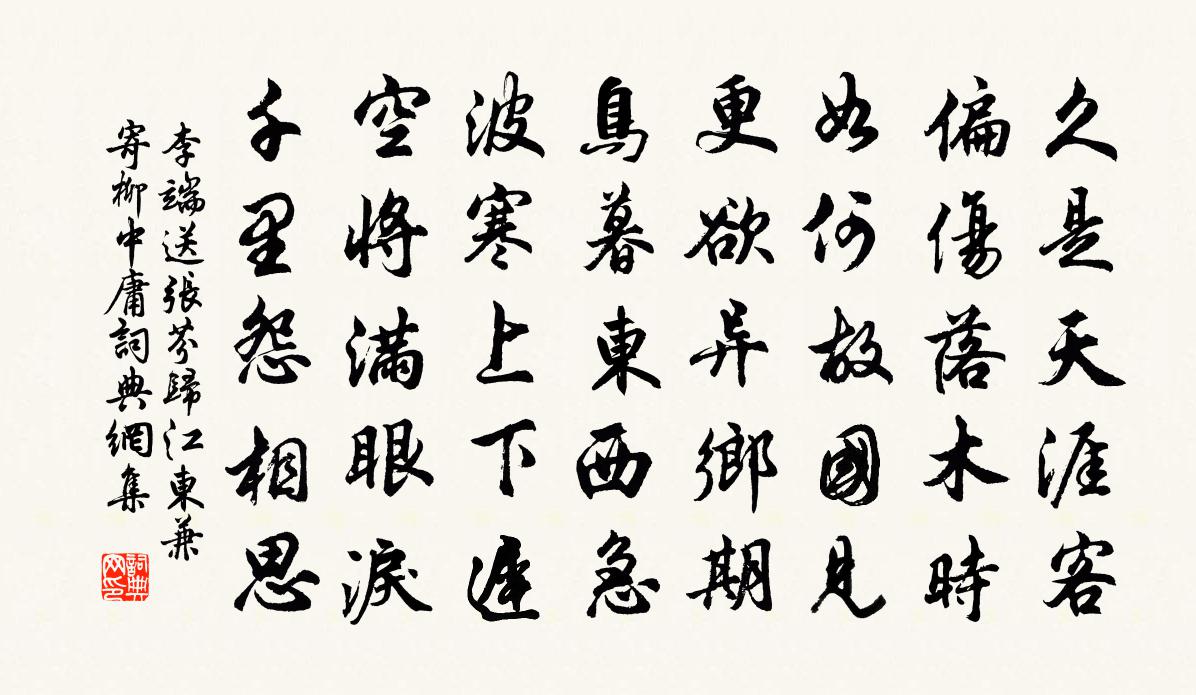 久是天涯客
偏傷落木時
如何故國見
更欲异鄉期
鳥暮東西急
波寒上下遲
空將滿眼淚
千里怨相思
李端送張芬歸江東兼
寄柳中庸詞典網集
詞典
网印